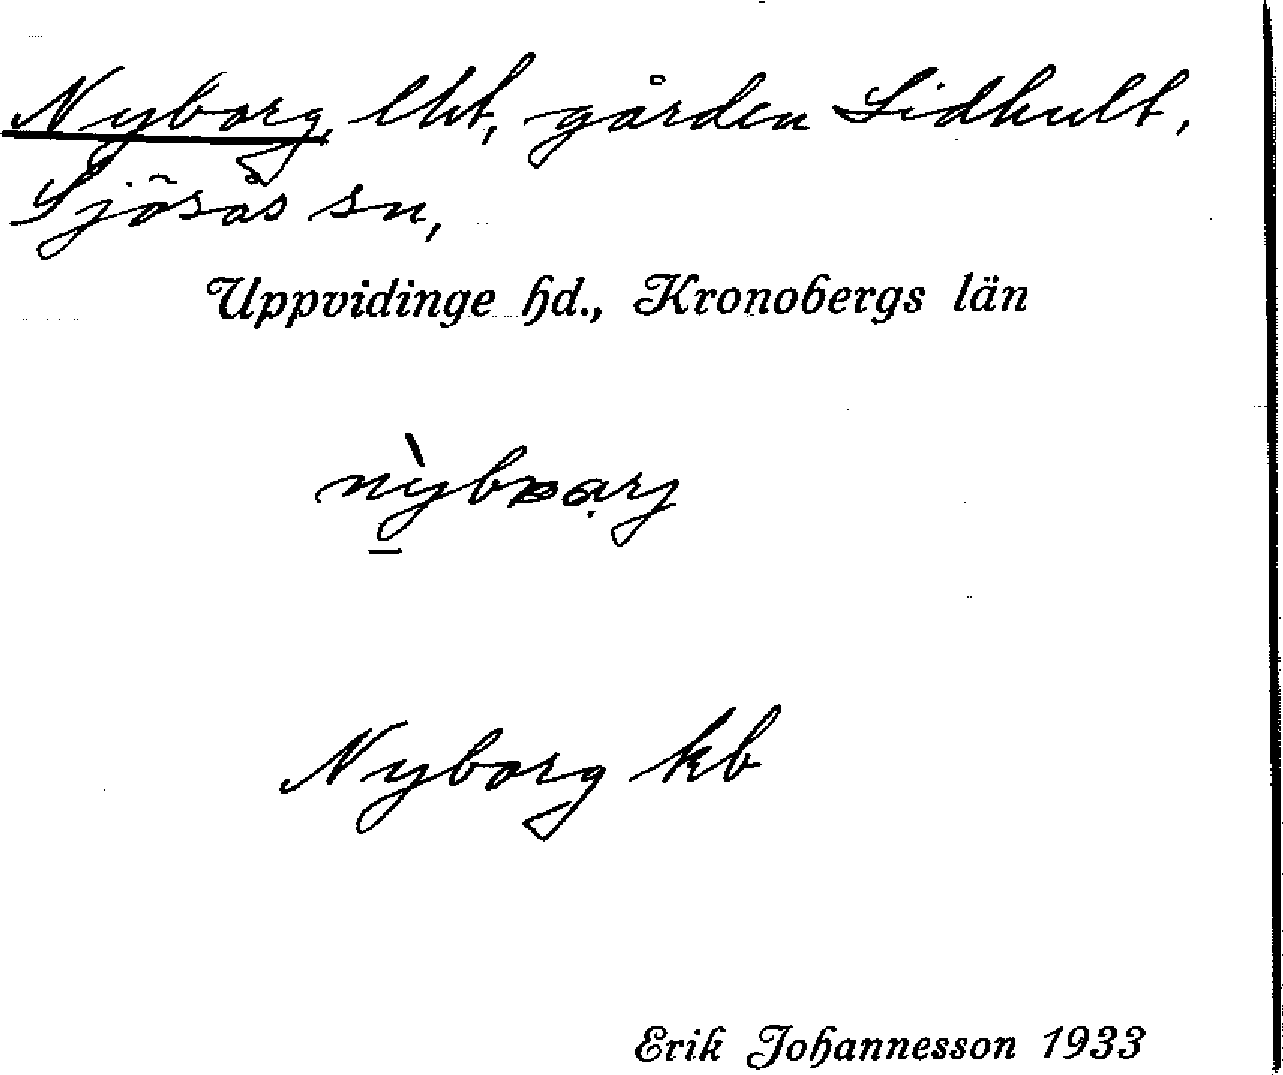 Nyborg, lht, gården Lidhult,
Sjösås sn,
Uppvidinge hd., Kronobergs län
Nyborg kb
Erik Johannesson 1933